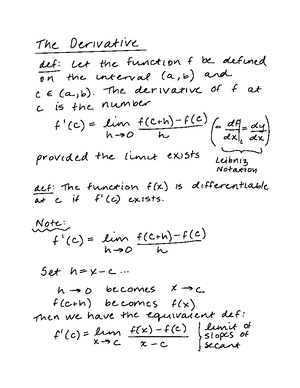 The Derivative
def: Let the function f be defined
on the interval (a,b) and
c ∈ (a,b). The derivative of f at
c is the number
f'(c) = lim h→0 f(c+h)-f(c)/h (= df/dx|c = dy/dx)
provided the limit exists
Leibniz
Notation
def: The function f(x) is differentiable
at c if f'(c) exists.
Note:
f'(c) = lim h→0 f(c+h)-f(c)/h
Set h = x-c ...
h→0 becomes x→c
f(c+h) becomes f(x)
Then we have the equivalent def:
f'(c) = lim x→c f(x)-f(c)/x-c } limit of slopes of secant